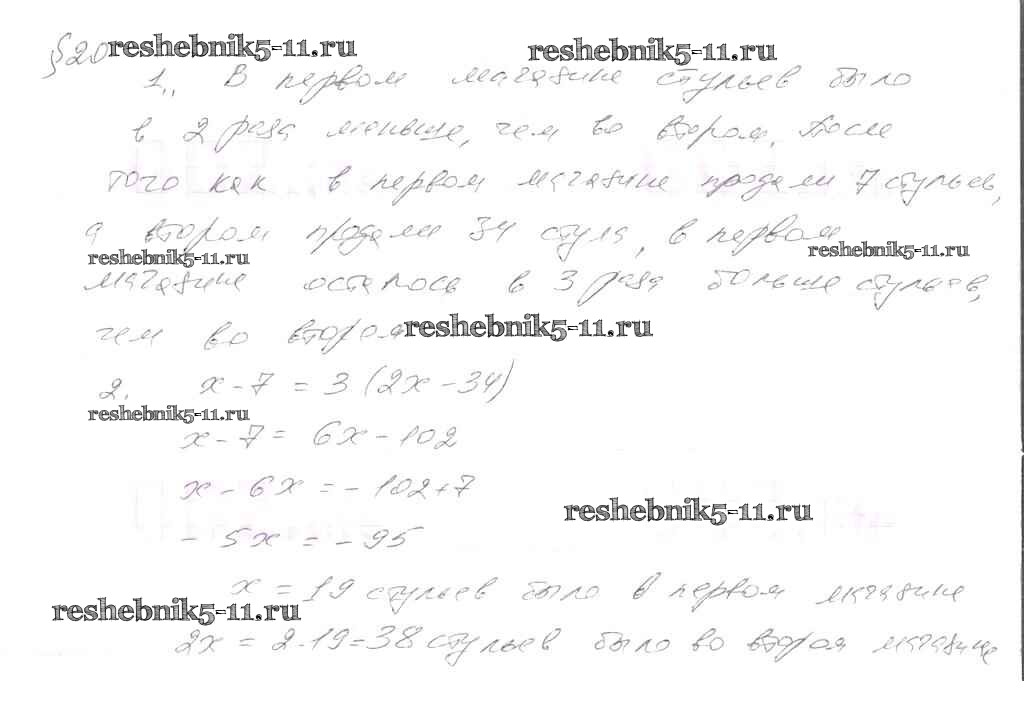 §20 reshebnik5-11.ru reshebnik5-11.ru
1. В первом магазине стульев было
в 2 раза меньше, чем во втором. После
того как в первом магазине продали 7 стульев,
а втором продали 34 стула, в первом
reshebnik5-11.ru reshebnik5-11.ru
магазине осталось в 3 раза больше стульев,
чем во втором reshebnik5-11.ru
2. x - 7 = 3 (2x - 34)
reshebnik5-11.ru
x - 7 = 6x - 102
x - 6x = - 102 + 7
reshebnik5-11.ru
- 5x = - 95
x = 19 стульев было в первом магазине
reshebnik5-11.ru
2x = 2·19 = 38 стульев было во втором магазине